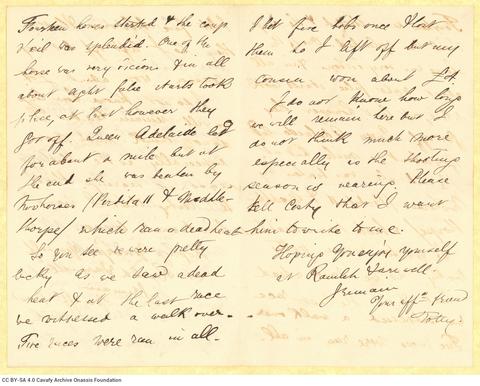 Fourteen horses started & the coup
d'œil was splendid. One of the
horse was very vicious & in all
about eight false starts took
place, at last however they
got off. Queen Adelaide led
for about a mile but at
the end she was beaten by
two horses &
which ran a dead heat
So you see we were pretty
lucky as we saw a dead
heat & at the last race
we witnessed a walk over.
Five races were run in all.
I bet five bobs once & lost
them so I left off but my
cousin won about £4.
I do not know how long
we will remain here but I
do not think much more
especially as the shooting
season is nearing. Please
tell Costy that I want
him to write to me.
Hoping you enjoy yourself
at Ramleh Farewell
I remain
Your aff^n friend
CC BY-SA 4.0 Cavafy Archive Onassis Foundation